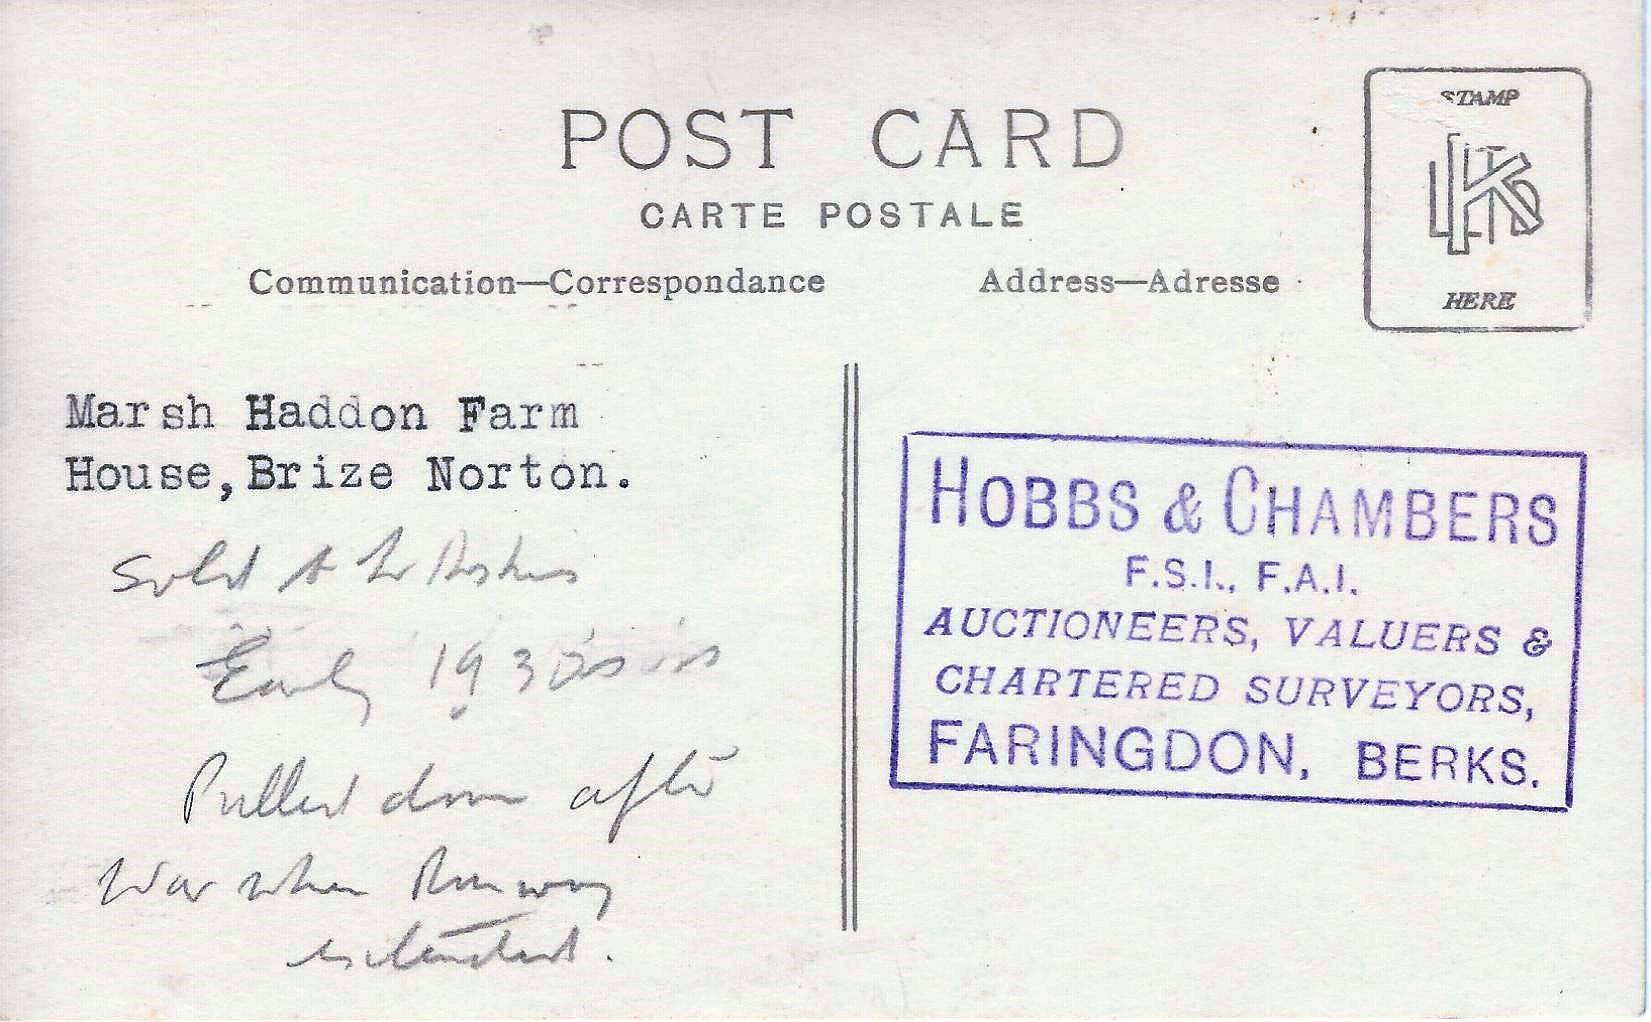 POST CARD
CARTE POSTALE
Communication—Correspondance
Address—Adresse
STAMP
KLTD
HERE
Marsh Haddon Farm
House, Brize Norton.
Sold
Early 1930's
Pulled down after
War when Runway
extended.
HOBBS & CHAMBERS
F.S.I., F.A.I.
AUCTIONEERS, VALUERS &
CHARTERED SURVEYORS,
FARINGDON, BERKS.